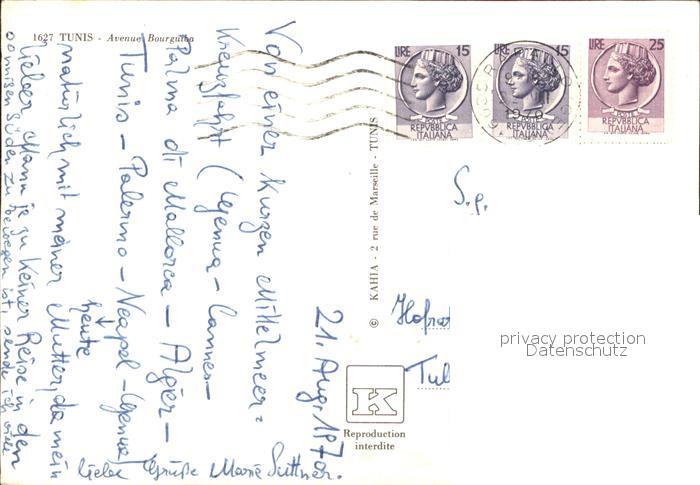 1627 TUNIS - Avenue Bourguiba
21. Aug. 1970.
Von einer kurzen Mittelmeer=
kreuzfahrt (Genua - Cannes -
Palma di Mallorca - Algier -
Tunis - Palermo - Neapel - Genua)
heute
natürlich mit meiner Mutter, da mein
lieber Mann ja zu keiner Reise in den
sonnigen Süden zu bewegen ist, sende ich viele
liebe Grüße Marie Suttner.
© KAHIA - 2 rue de Marseille - TUNIS
LIRE 15
POSTE
REPVBBLICA
ITALIANA
LIRE 15
POSTE
REPVBBLICA
ITALIANA
LIRE 25
POSTE
REPVBBLICA
ITALIANA
S.p.
Hofrat
privacy protection
Datenschutz
K
Reproduction
interdite